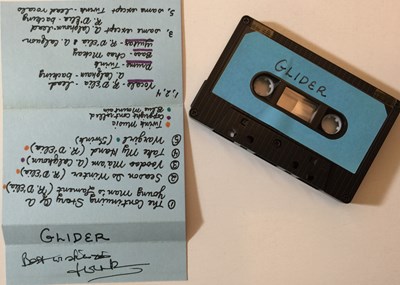 GLIDER
① The Continuing Story Of A
Young Man's Lament (R D'Elia)
② Season In Winter (R. D'Elia)
③ Voodoo Ma'am (A. Colqhoun)
④ Take My Hand (R D'Elia)
⑤ Wargirl (Twink)
Twink Music
Copyright Controlled
Blue Mountain
1, 2, 4 Vocals - R D'Elia - lead
A Colqhoun backing
Drums - Twink
Bass - Chas McKay
Guitars - R. D'Elia & A. Colqhoun
3. same except A Colqhoun - lead
R. D'Elia backing
5. same except Twink - lead vocals
Best wishes
Twink
GLIDER